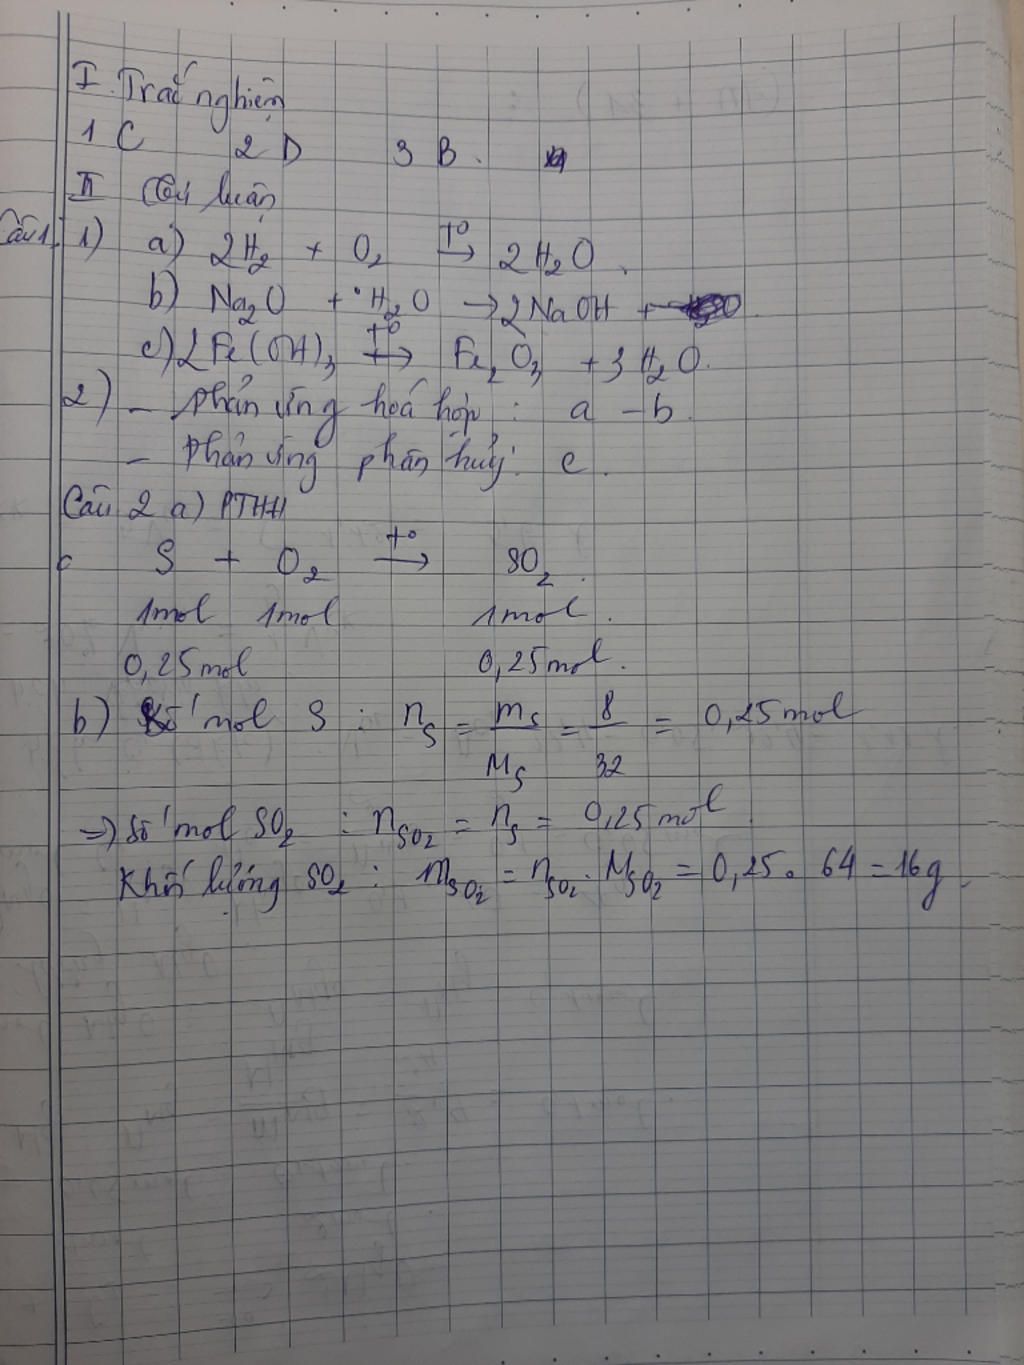 I. Trắc nghiệm
1 C 2 D 3 B.
II Tự luận
Câu 1 1) a) 2H₂ + O₂ →(t°) 2H₂O.
b) Na₂O + H₂O → 2NaOH +
c) 2Fe(OH)₃ →(t°) Fe₂O₃ + 3H₂O.
2) - phản ứng hoá hợp : a - b.
- Phản ứng phân huỷ: c.
Câu 2 a) PTHH
S + O₂ →(t°) SO₂.
1mol 1mol 1mol.
0,25mol 0,25mol.
b) Số mol S : n_S = m_S/M_S = 8/32 = 0,25mol
=> Số mol SO₂ : n_SO₂ = n_S = 0,25mol
Khối lượng SO₂ : m_SO₂ = n_SO₂ . M_SO₂ = 0,25 . 64 = 16g.